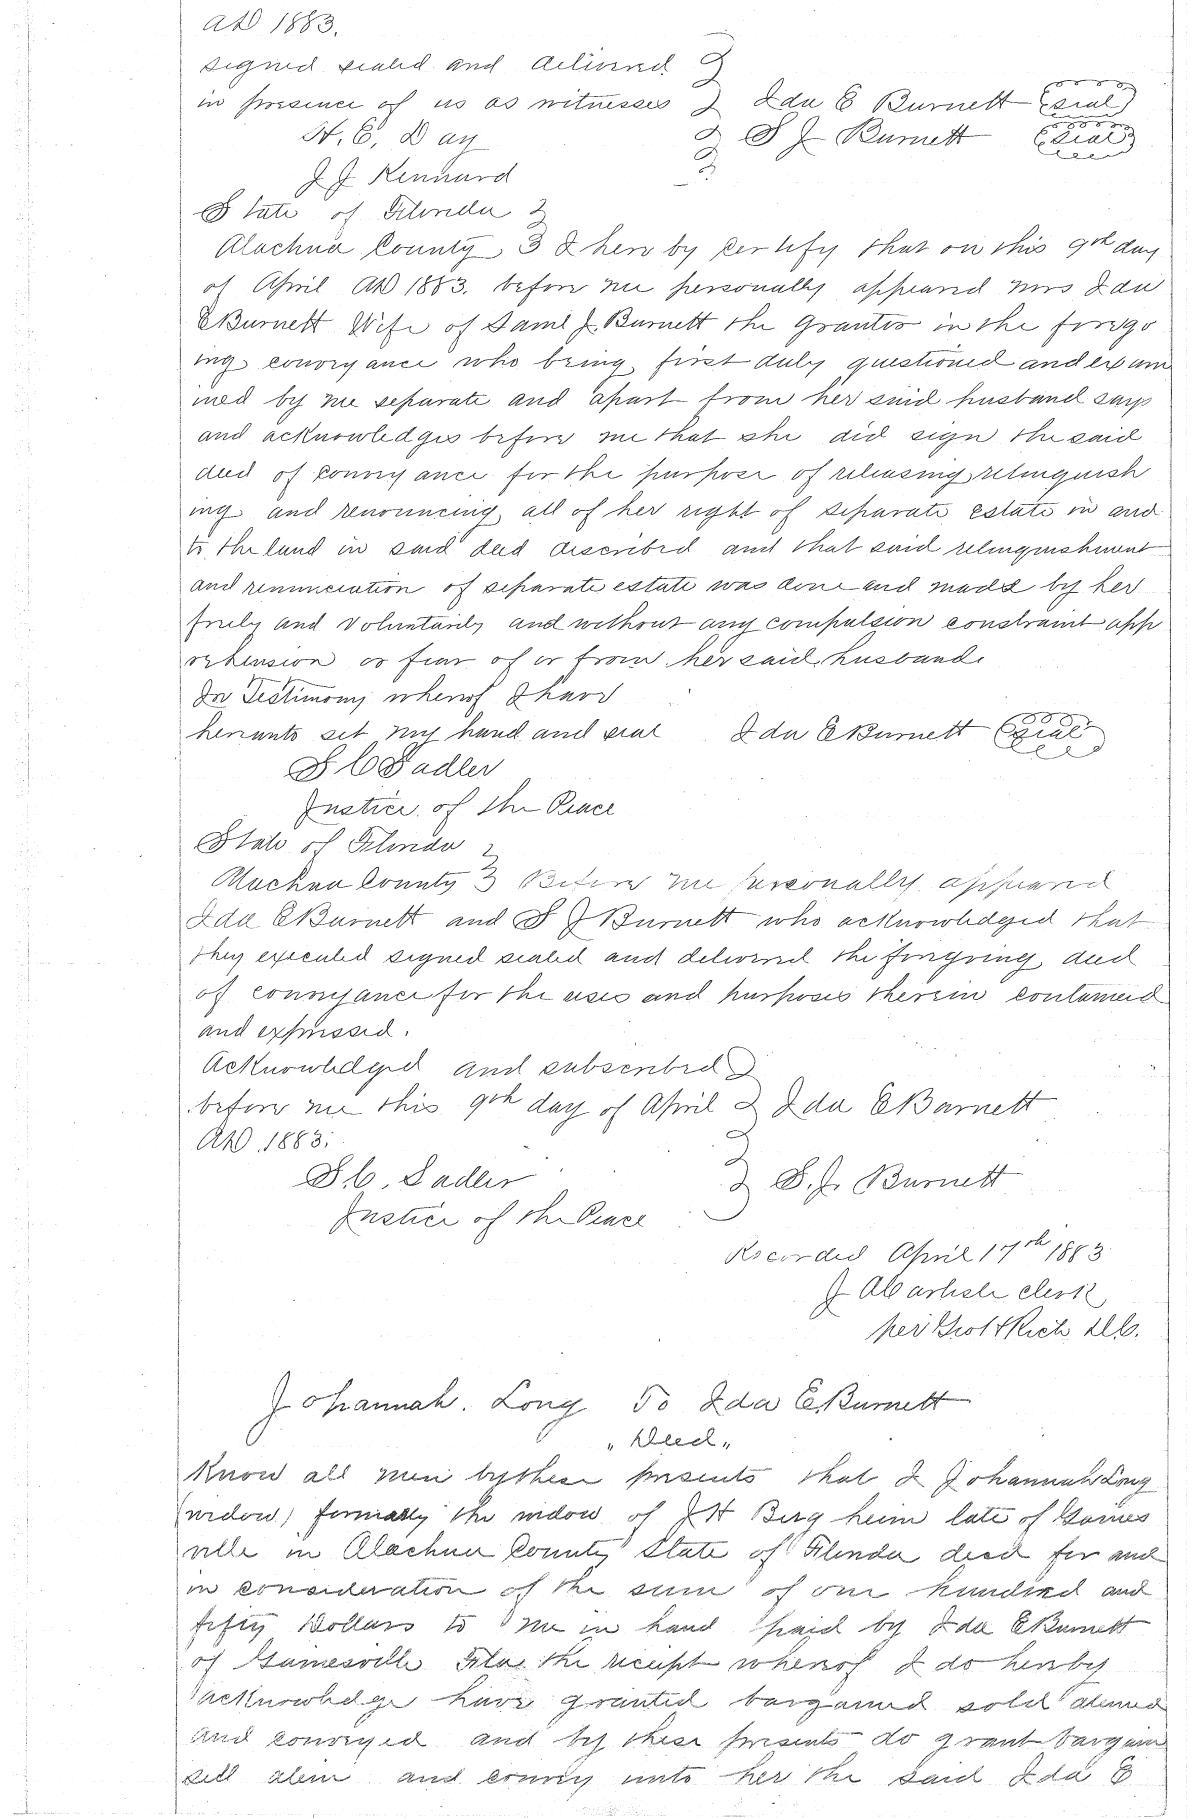 AD 1883.
Signed sealed and delivered
in presence of us as witnesses Ida E Burnett (Seal)
H. E. Day S J Burnett (Seal)
J J Kennard
State of Florida
Alachua County I hereby certify that on this 9th day
of April AD 1883. before me personally appeared Mrs Ida
E Burnett Wife of Saml J. Burnett the Grantor in the forego
ing conveyance who being first duly questioned and exam
ined by me separate and apart from her said husband says
and acknowledges before me that she did sign the said
deed of conveyance for the purpose of releasing relinquish
ing and renouncing all of her right of separate estate in and
to the land in said deed described and that said relinquishment
and renunciation of separate estate was done and made by her
freely and Voluntarily and without any compulsion constraint app
rehension or fear of or from her said husband.
In Testimony whereof I have
hereunto set my hand and seal Ida E Burnett (Seal)
S C Sadler
Justice of the Peace
State of Florida
Alachua County Before me personally appeared
Ida E Burnett and S J Burnett who acknowledged that
they executed signed sealed and delivered the foregoing deed
of conveyance for the uses and purposes therein contained
and expressed.
Acknowledged and subscribed
before me this 9th day of April Ida E Burnett
AD. 1883.
S. C. Sadler S. J. Burnett
Justice of the Peace
Recorded April 17th 1883
J A Carlisle Clerk
per D.C.
Johannah. Long To Ida E. Burnett
"Deed"
Know all men by these presents that I Johannah Long
(widow) formerly the widow of J H Berg heim late of Gaines
ville in Alachua County State of Florida decd for and
in consideration of the sum of one hundred and
fifty Dollars to me in hand paid by Ida E Burnett
of Gainesville Fla the receipt whereof I do hereby
acknowledge have granted bargained sold aliened
and conveyed and by these presents do grant bargain
sell alien and convey unto her the said Ida E